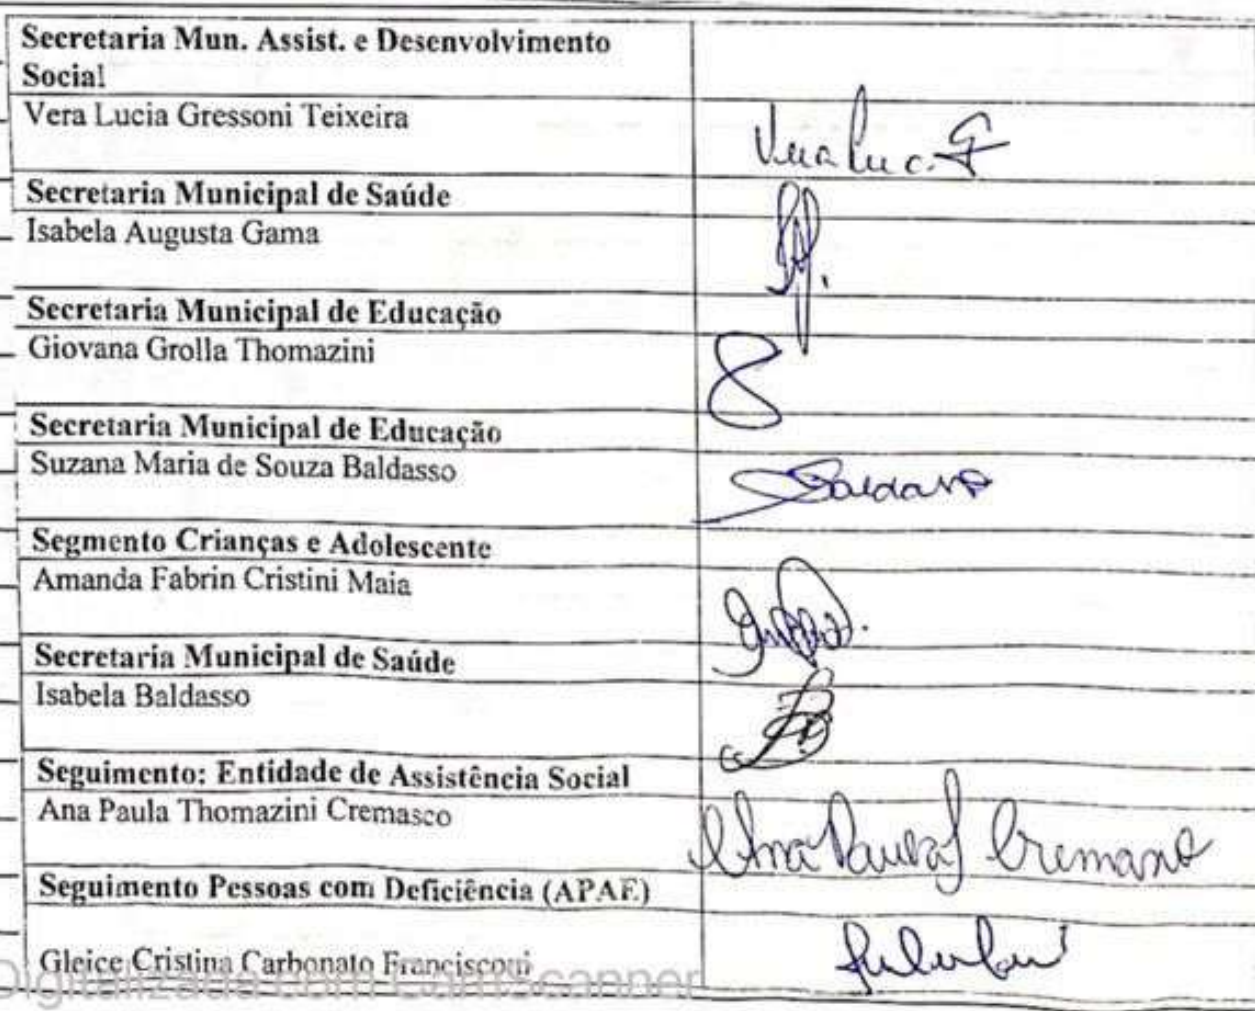 Secretaria Mun. Assist. e Desenvolvimento
Social
Vera Lucia Gressoni Teixeira
Vera Luc. G
Secretaria Municipal de Saúde
Isabela Augusta Gama
Secretaria Municipal de Educação
Giovana Grolla Thomazini
Secretaria Municipal de Educação
Suzana Maria de Souza Baldasso
Segmento Crianças e Adolescente
Amanda Fabrin Cristini Maia
Secretaria Municipal de Saúde
Isabela Baldasso
Seguimento: Entidade de Assistência Social
Ana Paula Thomazini Cremasco
Ana Paula J Cremasco
Seguimento Pessoas com Deficiência (APAE)
Gleice Cristina Carbonato Francisconi
Digitalizada com CamScanner